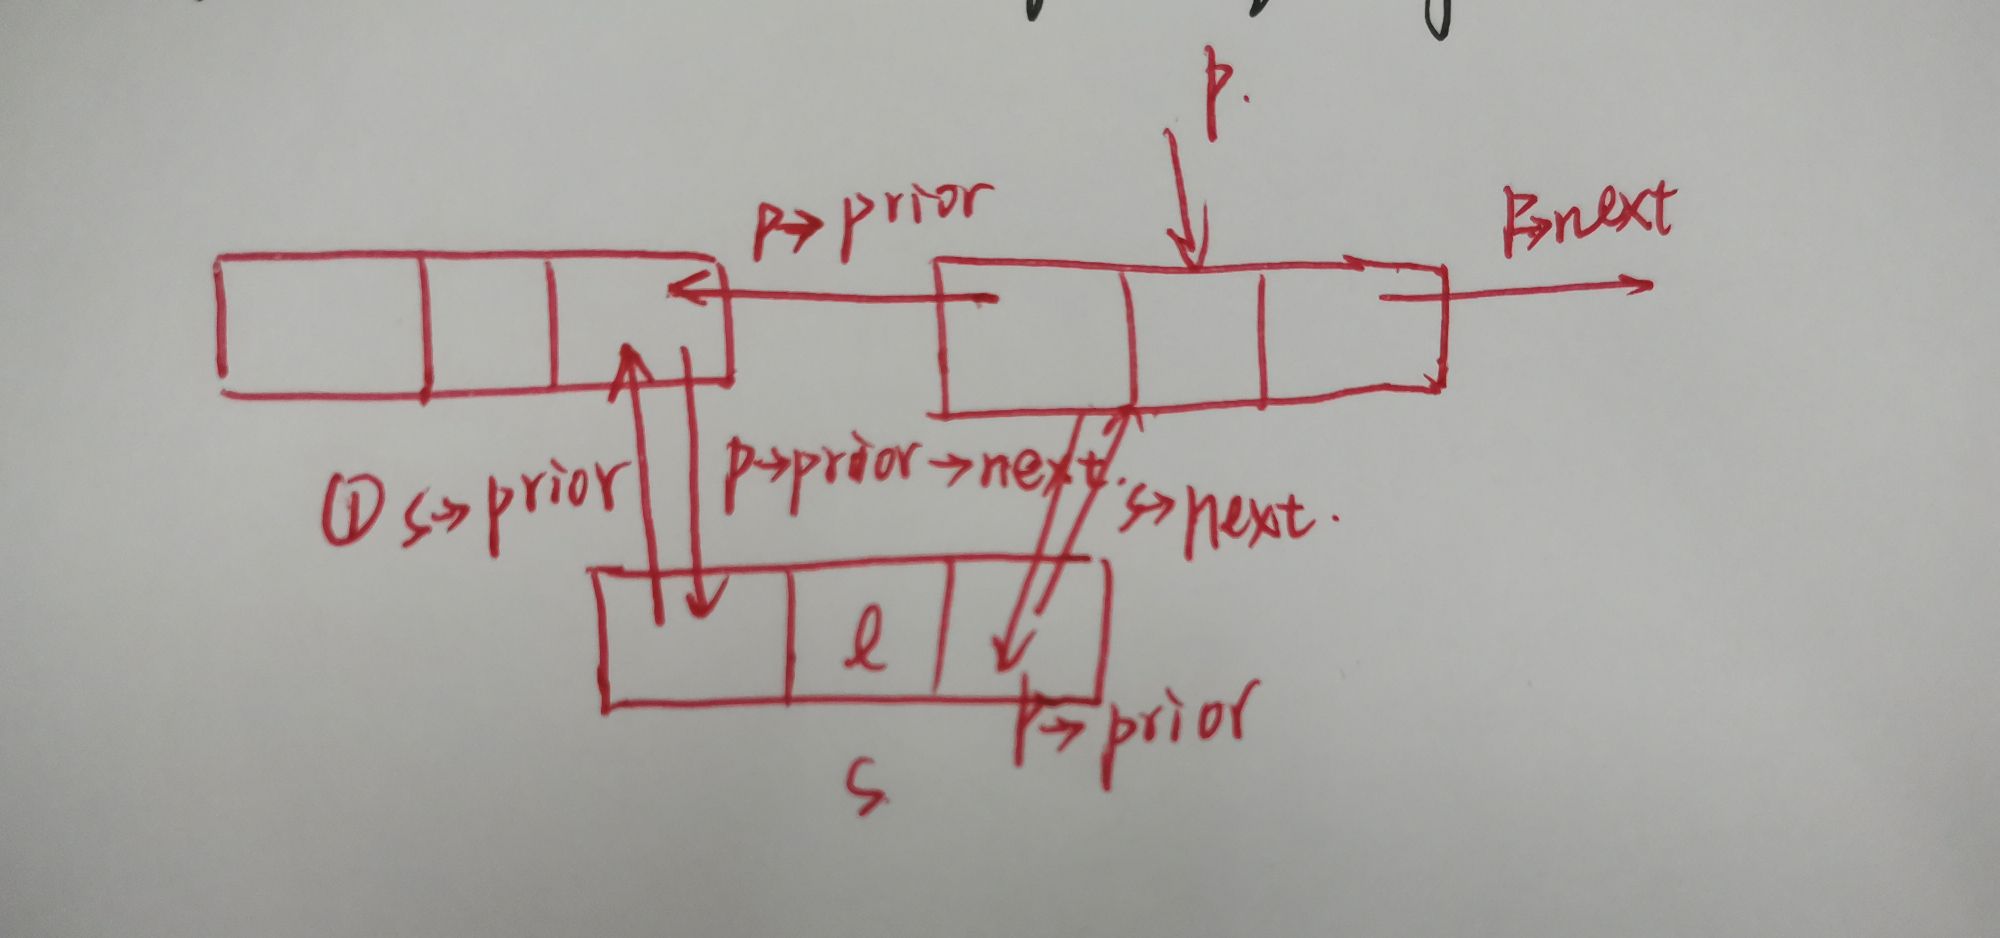 p.
p→prior
p→next
① s→prior
p→prior→next.
s→next.
e
p→prior
s